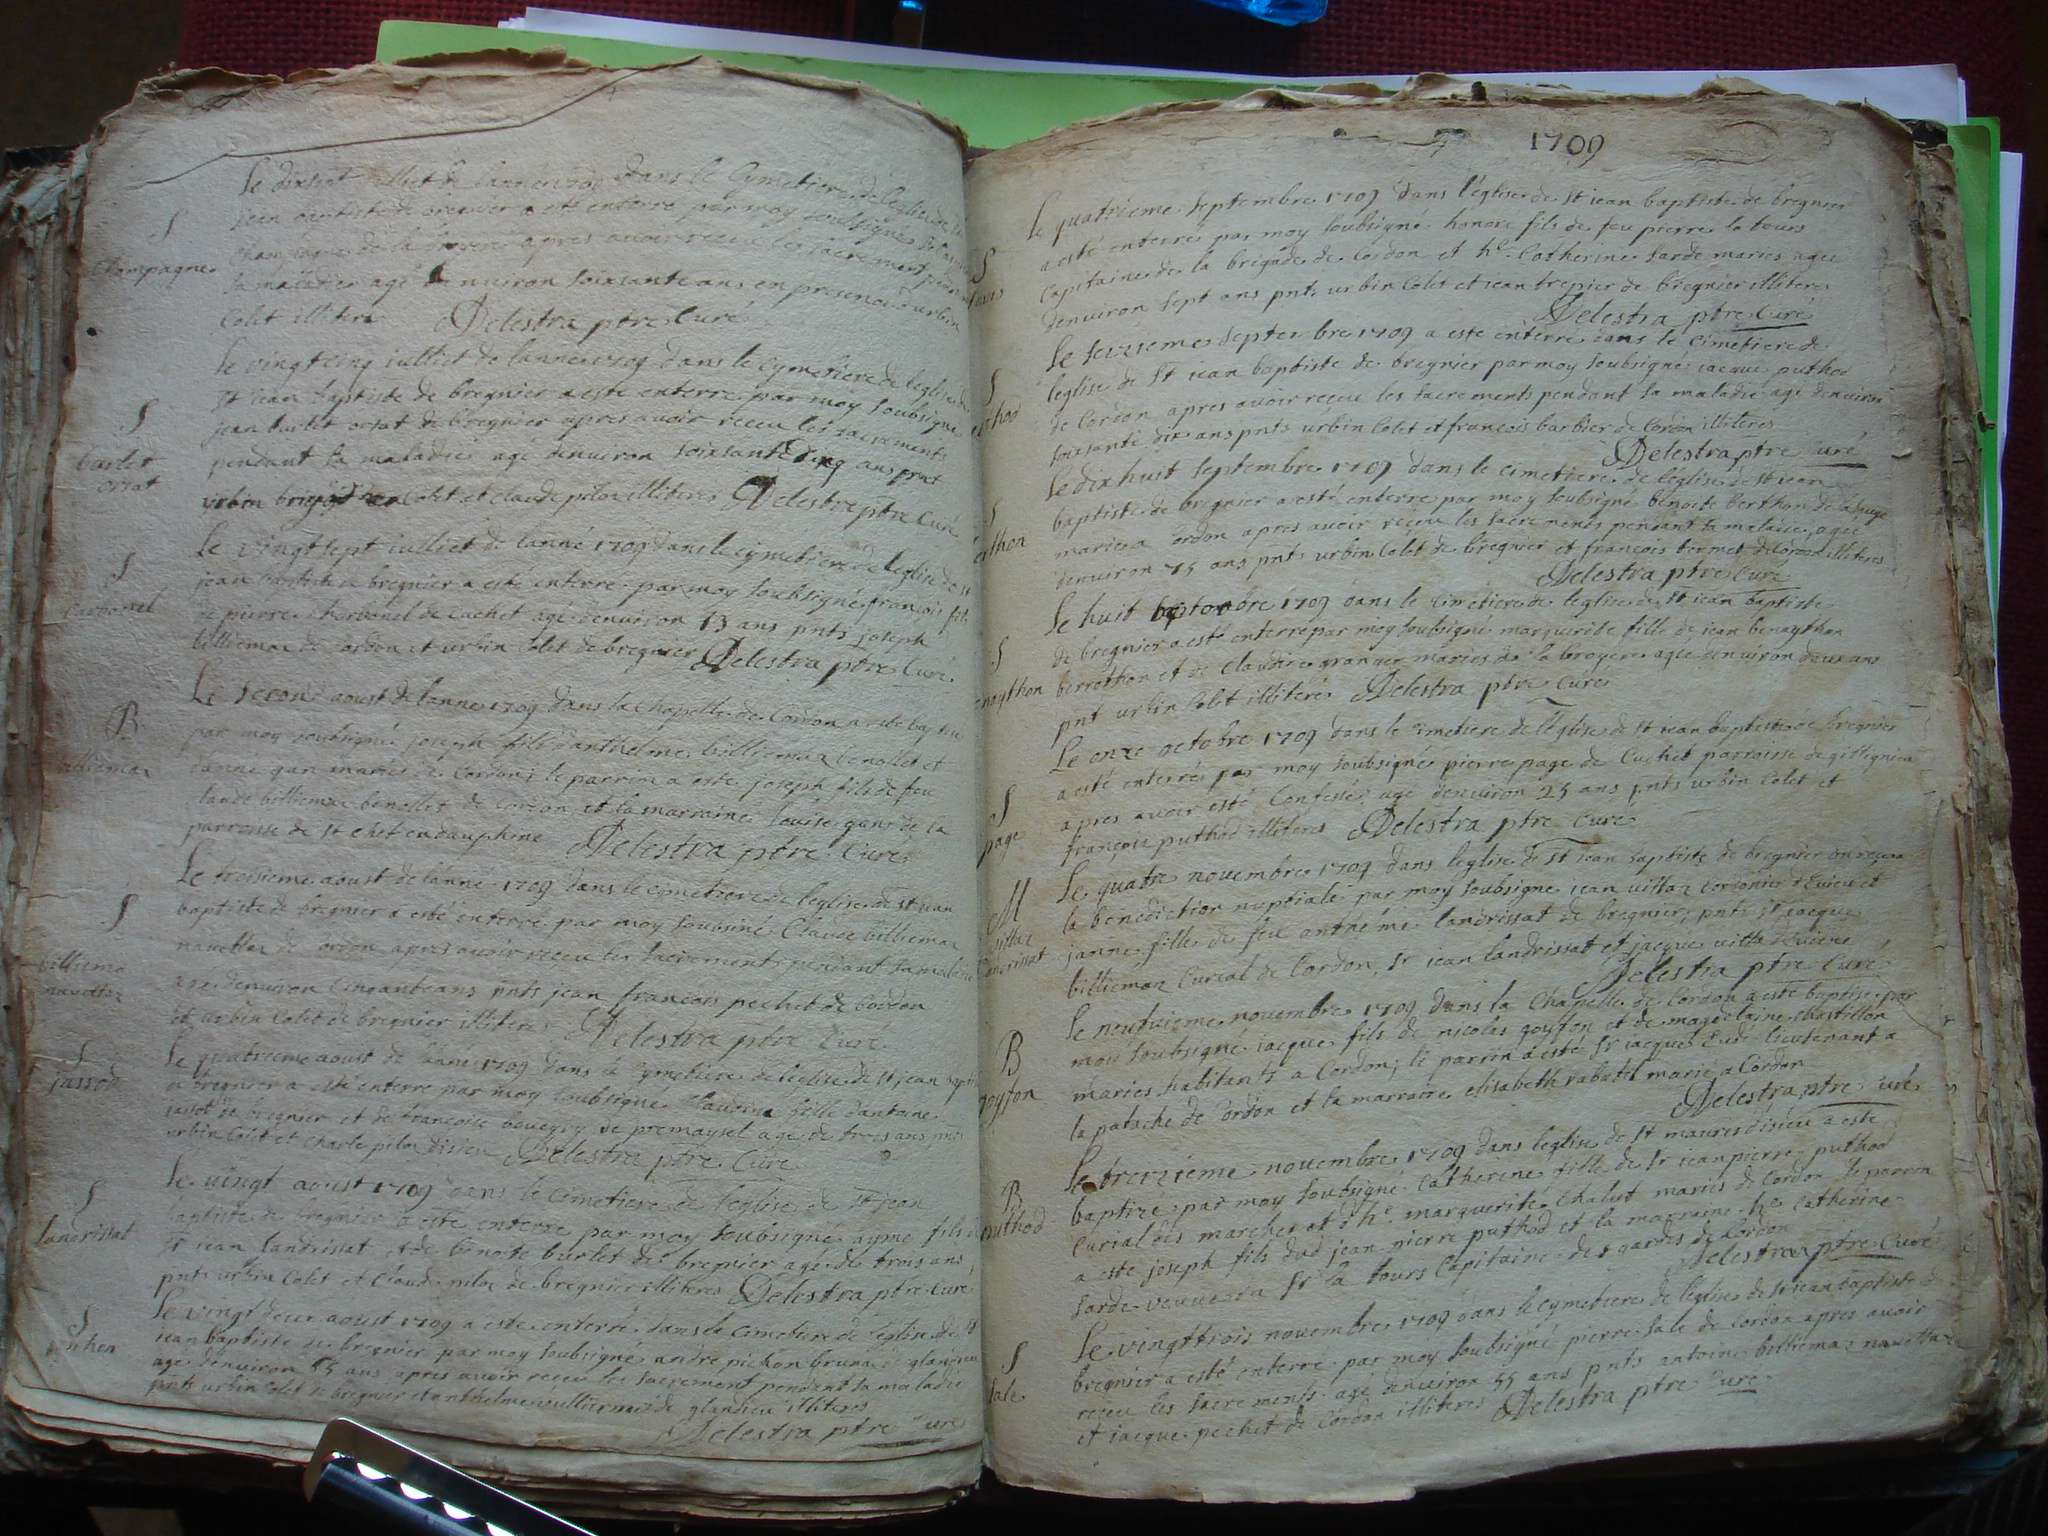 Le dixsept julliet de lannee 1709 dans le Cymetiere de leglise de St
jean baptiste de bregnier a esté enterré par moy soubsigné
S
Champagne
champagne de la bruyere apres avoir receu les sacrements pendant
sa maladie agé denviron soixante ans en presence durbin
Colet illitere Delestra ptre Curé
Le vingtcinq julliet de lannee 1709 dans le Cymetiere de leglise de
St jean baptiste de bregnier a este enterre par moy soubsigné
S
burlet
orsat
jean burlet orsat de bregnier apres avoir receu les sacrements
pendant sa maladie agé denviron soixante cinq ans pnt
urbin Colet et claude pilon illiteres Delestra ptre Curé
Le vingtsept julliet de lanné 1709 dans le cymetiere de leglise de St
S
Carbonel
jean baptiste de bregnier a esté enterre par moy soubsigné françois fils
de pierre charbonel de cuchet agé denviron 13 ans pnts joseph
billiemaz de Cordon et urbin Colet de bregnier Delestra ptre Curé
Le second aoust de lanne 1709 dans la chapelle de Cordon a este baptisé
B
billiemaz
par moy soubsigné joseph fils danthelme billiemaz benollet et
danne gan mariés de Cordon; le parrin a esté joseph fils de feu
Claude billiemaz benollet de Cordon et la marraine louise gans de la
parroisse de St Chef en dauphiné Delestra ptre Curé
Le troisieme aoust de lanné 1709 dans le cymetiere de leglise de St jean
S
billiema
navettaz
baptiste de bregnier a esté enterré par moy soubsiné Claude billiemaz
navettaz de Cordon apres avoir receu les sacrements pendant sa maladie
age denviron cinquante ans pnts jean francois pechet de Cordon
et urbin Colet de bregnier illiteres Delestra ptre Curé
S
jassod
Le quatrieme aoust de lanne 1709 dans le cymetiere de leglise de St jean baptiste
de bregnier a esté enterre par moy soubsigne Claudina fille dantoine
jassod de bregnier et de francoise de premeysel age de trois ans pnts
urbin Colet et Charle pilon disieu Delestra ptre Curé
Le vingt aoust 1709 dans le cimetiere de leglise de St jean
S
landrissat
baptiste de bregnier a esté enterre par moy soubsigné aymé fils de
Sr jean landrissat et de benoite burlet de bregnier agé de trois ans
pnts urbin Colet et Claude pilon de bregnier illiteres Delestra ptre Curé
S
pichon
Le vingt deux aoust 1709 a este enterré dans le cimetiere de leglise de St
jean baptiste de bregnier par moy soubsigné andré pichon brunaz de glandieu
agé denviron 55 ans apres avoir receu les sacrement pendant sa maladie
pnts urbin Colet de bregnier et anthelme vulliermoz de glandieu illiteres
Delestra ptre Curé
1709
Le quatrieme septembre 1709 dans l'églisse de St jean baptiste de bregnier
a esté enterré par moy soubsigné honoré fils de feu pierre la tours
S
Capitaine de la brigade de Cordon et hte Catherine sarde mariés agée
denviron sept ans pnts urbin Colet et jean trepier de bregnier illiteres
Delestra ptre Curé
Le seizieme septembre 1709 a este enterré dans le cimetiere de
S
puthod
leglise de St jean baptiste de bregnier par moy soubsigné jacque puthod
de Cordon apres avoir receu les sacrements pendant sa maladie agé denviron
soixante dix ans pnts urbin Colet et francois barbier de Cordon illiteres
Delestra ptre Curé
Le dixhuit septembre 1709 dans le cimetiere de léglise de St jean
S
berthon
baptiste de bregnier a esté enterré par moy soubsigné benoite berthon de
mariée a Cordon apres avoir receu les sacrements pendant sa maladie agée
denviron 75 ans pnts urbin Colet de bregnier et françois de Cordon illiteres
Delestra ptre Curé
Le huit octobre 1709 dans le cimetiere de leglise de St jean baptiste
S
benoython
de bregnier a esté enterré par moy soubsigné margurite fille de jean benoython
berrothon et de Claudine granger mariés de la bruyere agée denviron deux ans
pnt urbin Colet illiteré Delestra ptre Curé
Le onze octobre 1709 dans le cimetiere de l'eglise de St jean baptiste de bregnier
S
page
a esté enterré par moy soubsigné pierre page de Cuchet parroisse de
apres avoir esté Confessé, agé denviron 25 ans pnts urbin Colet et
françois puthod illiteres Delestra ptre Curé
Le quatre novembre 1709 dans leglise de St jean baptiste de bregnier on receu
M
vittaz
landrissat
la benediction nuptiale par moy soubsigne jean vittaz cordonier d'Evieu et
janne fille de feu antheme landrissat de bregnier, pnts Sr jacque
billiemaz Curial de Cordon, Sr jean landrissat et jacque vitta
Delestra ptre Curé
Le neufvieme novembre 1709 dans la Chapelle de Cordon a este baptisé par
B
goyffon
moy soubsigné jacque fils de nicolas goyffon et de magdelaine chastillon
mariés habitants a Cordon; le parrin a esté Sr jacque lieutenant a
la patache de Cordon et la marraine elisabeth rabatel marié a Cordon
Delestra ptre Curé
Le treizieme novembre 1709 dans leglise de St maures disieu a este
B
puthod
baptizé par moy soubsigné Catherine fille de Sr jean pierre puthod
Curial des marches et d'hte marguerite Chalut mariés de Cordon le parrin
a esté joseph fils dud jean pierre puthod et la marraine hte Catherine
sarde veuve du Sr la tours Capitaine des gardes de Cordon
Delestra ptre Curé
Le vingttrois novembre 1709 dans le cymetiere de leglise de St jean baptiste de
S
sale
bregnier a esté enterré par moy soubsigné pierre sale de Cordon apres avoir
receu les sacrements agé denviron 55 ans pnts antoine billiemaz navettaz
et jacque pechet de Cordon illiteres Delestra ptre Curé